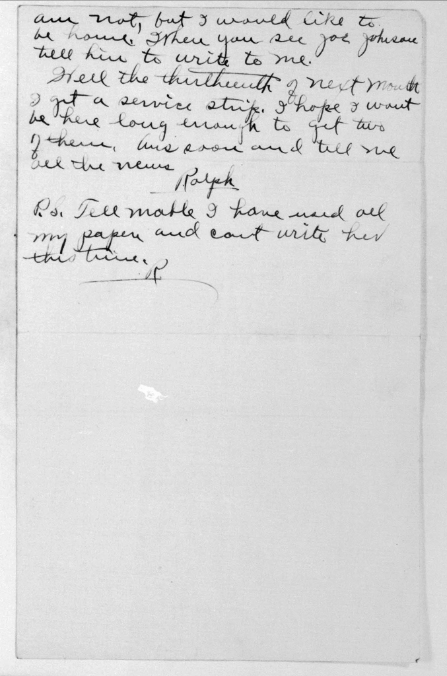 am not, but I would like to
be home. When you see Joe Johnson
tell him to write to me.
Well the thirtheenth of next month
I get a service strip. I hope I wont
be here long enough to get two
of them. Ans soon and tell me
all the news
Ralph
P.S. Tell mable I have used all
my paper and cant write her
this time.
R